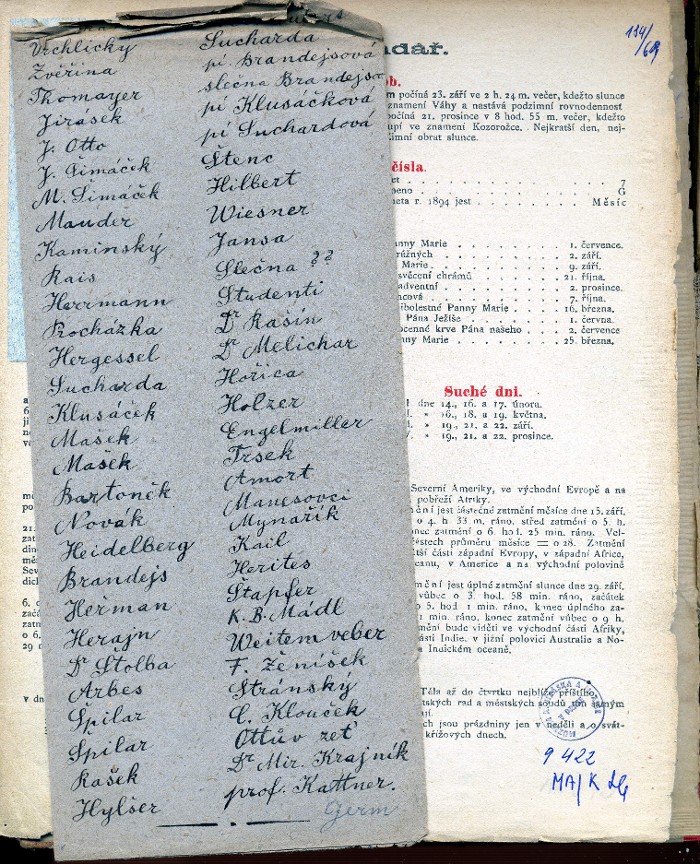 Vrchlický
Zvěřina
Thomayer
Jirásek
J. Otto
J. Šimáček
M. Šimáček
Mauder
Kaminský
Rais
Herrmann
Procházka
Hergessel
Sucharda
Klusáček
Mašek
Mašek
Bartoněk
Novák
Heidelberg
Brandejs
Heřman
Herajn
Dr Štolba
Arbes
Špilar
Špilar
Kašek
Hylšer
Sucharda
pí Brandejsová
slečna Brandejsov
pí Klusáčková
pí Suchardová
Štenc
Hilbert
Wiesner
Jansa
Slečna ??
Studenti
Dr Rašín
Dr Melichar
Hořica
Holzer
Engelmüller
Trsek
Amort
Manesovci
Mynařík
Kail
Herites
Štapfer
K. B. Mádl
Weitenweber
F. Ženíšek
Stránský
C. Klouček
Ottův zeť
Dr Mir. Krajník
prof. Kattner.
Germ
194/69
ndář.
ob.
m počíná 23. září ve 2 h. 24 m. večer, kdežto slunce
znamení Váhy a nastává podzimní rovnodennost
očíná 21. prosince v 8 hod. 55 m. večer, kdežto
upí ve znamení Kozorožce. Nejkratší den, nej-
zimní obrat slunce.
čísla.
et . . . 7
meno . . . G
neta r. 1894 jest . . . Měsíc
anny Marie . . . 1. července.
rážných . . . 2. září.
Marie . . . 9. září.
svěcení chrámů . . . 21. října.
adventní . . . 2. prosince.
ncová . . . 7. října.
bolestné Panny Marie . . . 16. března.
Pána Ježíše . . . 1. června.
ocenné krve Pána našeho . . . 2. července
anny Marie . . . 25. března.
Suché dni.
dne 14., 16. a 17. února.
» 16., 18. a 19. května.
» 19., 21. a 22. září.
» 19., 21. a 22. prosince.
Severní Ameriky, ve východní Evropě a na
pobřeží Afriky.
nění jest částečné zatmění měsíce dne 15. září.
o 4. h. 33 m. ráno, střed zatmění o 5. h.
onec zatmění o 6. hod. 25 min. ráno. Vel-
ěstech průměru měsíce = 0·28. Zatmění
ětší části západní Evropy, v západní Africe,
eanu, v Americe a na západní polovině
mění jest úplné zatmění slunce dne 29. září.
vůbec o 3. hod. 58 min. ráno, začátek
o 5. hod 1 min. ráno, konec úplného za-
1 min. ráno, konec zatmění vůbec o 9 h.
mění bude viděti ve východní části Afriky,
ásti Indie, v jižní polovici Australie a No-
a Indickém oceáně.
Těla až do čtvrtku nejblíže příštího
tských rad a městských soudů tím samým
ch jsou prázdniny jen v neděli a o svát-
křížových dnech.
9 422
MA/K